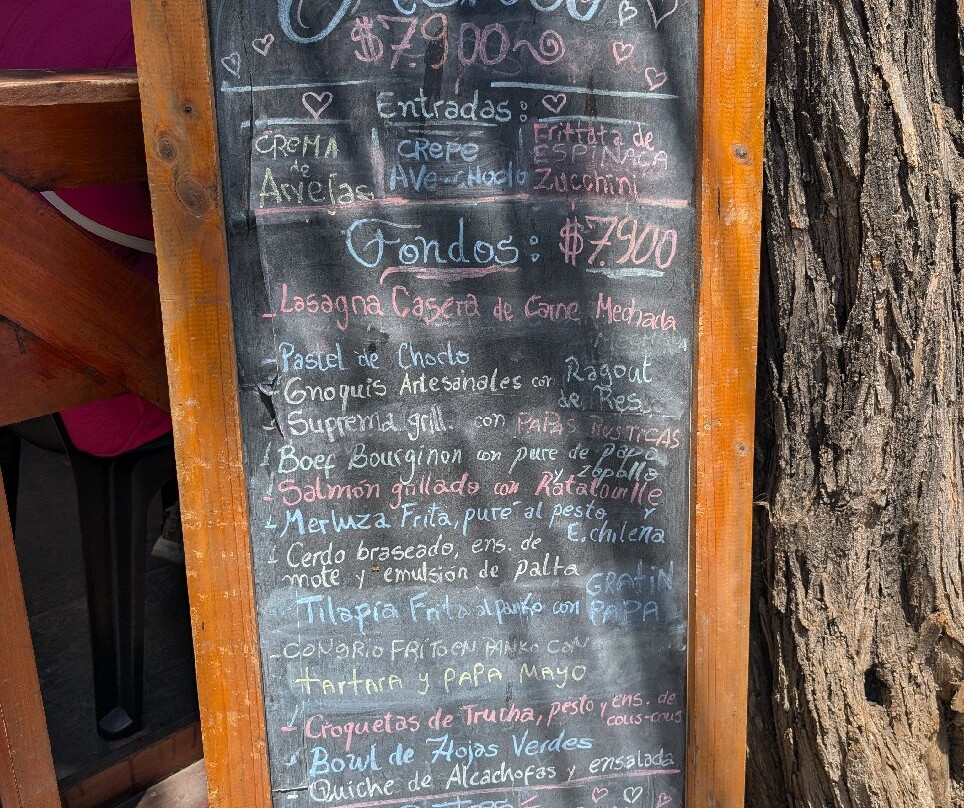 $7.900
Entradas:
CREMA de Arvejas
CREPE AVE-CHoclo
Frittata de ESPINACA Zucchini
Fondos: $7.900
-Lasagna Casera de Carne Mechada
-Pastel de Choclo
-Gnoquis Artesanales con Ragout de Res
-Suprema grill. con PAPAS RUSTICAS
-Boef Bourginon con pure de papa y zapallo
-Salmón grillado con Ratatouille
-Merluza Frita, puré al pesto y E.chilena
-Cerdo braseado, ens. de
mote y emulsión de palta
Tilapia Frita al panko con GRATIN PAPA
-CONGRIO FRITO EN PANKO CON
tartara y PAPA MAYO
-Croquetas de Trucha, pesto y ens. de cous-cous
-Bowl de Hojas Verdes
-Quiche de Alcachofas y ensalada